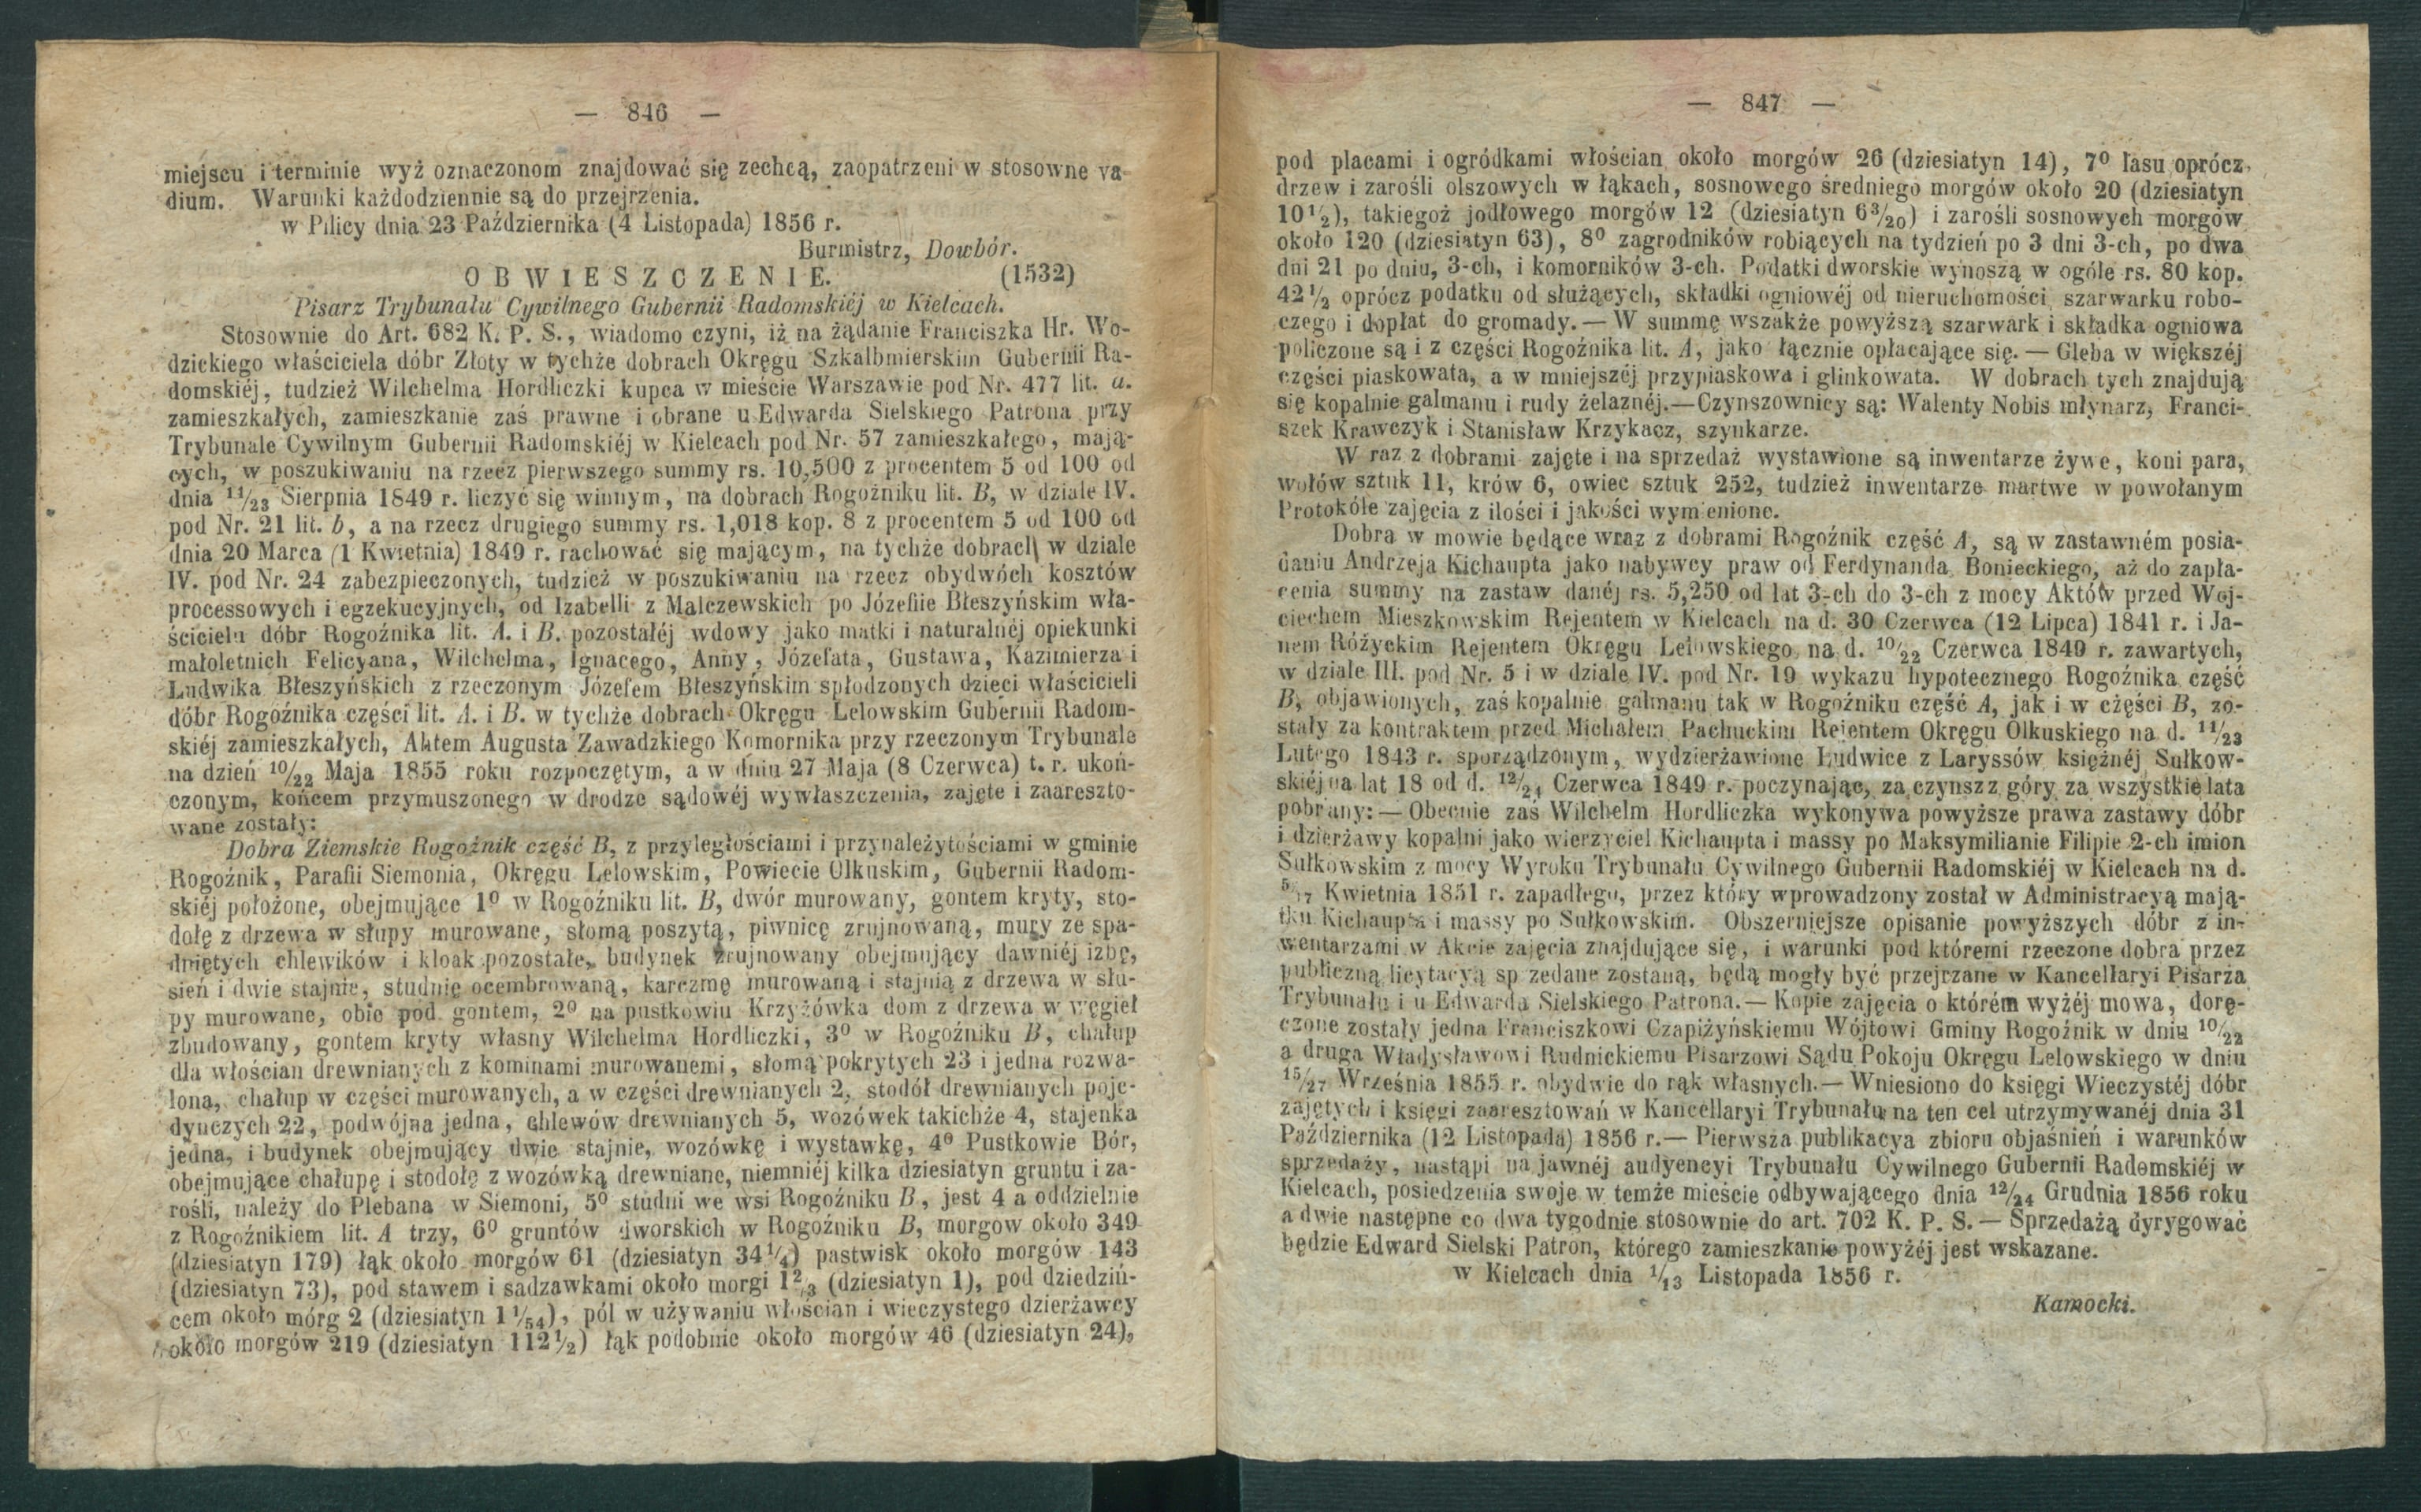 — 846 —
miejscu i terminie wyż oznaczonom znajdować się zechcą, zaopatrzeni w stosowne va-
dium. Warunki każdodziennie są do przejrzenia.
w Pilicy dnia 23 Października (4 Listopada) 1856 r.
Burmistrz, Dowbór.
OBWIESZCZENIE. (1532)
Pisarz Trybunału Cywilnego Gubernii Radomskiéj w Kielcach.
Stosownie do Art. 682 K. P. S., wiadomo czyni, iż na żądanie Franciszka Hr. Wo-
dzickiego właściciela dóbr Złoty w tychże dobrach Okręgu Szkalbmierskim Gubernii Ra-
domskiéj, tudzież Wilchelma Hordliczki kupca w mieście Warszawie pod Nr. 477 lit. a.
zamieszkałych, zamieszkanie zaś prawne i obrane u Edwarda Sielskiego Patrona przy
Trybunale Cywilnym Gubernii Radomskiéj w Kielcach pod Nr. 57 zamieszkałego, mają-
cych, w poszukiwaniu na rzecz pierwszego summy rs. 10,500 z procentem 5 od 100 od
dnia 11/23 Sierpnia 1849 r. liczyć się winnym, na dobrach Rogoźniku lit. B, w dziale IV.
pod Nr. 21 lit. b, a na rzecz drugiego summy rs. 1,018 kop. 8 z procentem 5 od 100 od
dnia 20 Marca (1 Kwietnia) 1849 r. rachować się mającym, na tychże dobrach w dziale
IV. pod Nr. 24 zabezpieczonych, tudzież w poszukiwaniu na rzecz obydwóch kosztów
processowych i egzekucyjnych, od Izabelli z Malczewskich po Józefiie Błeszyńskim wła-
ścicielu dóbr Rogoźnika lit. A. i B. pozostałéj wdowy jako matki i naturalnéj opiekunki
małoletnich Felicyana, Wilchelma, Ignacego, Anny, Józefata, Gustawa, Kazimierza i
Ludwika Błeszyńskich z rzeczonym Józefem Błeszyńskim spłodzonych dzieci właścicieli
dóbr Rogoźnika części lit. A. i B. w tychże dobrach Okręgu Lelowskim Gubernii Radom-
skiéj zamieszkałych, Aktem Augusta Zawadzkiego Komornika przy rzeczonym Trybunale
na dzień 10/22 Maja 1855 roku rozpoczętym, a w dniu 27 Maja (8 Czerwca) t. r. ukoń-
czonym, końcem przymuszonego w drodze sądowéj wywłaszczenia, zajęte i zaareszto-
wane zostały:
Dobra Ziemskie Rogoźnik część B, z przyległościami i przynależytościami w gminie
Rogoźnik, Parafii Siemonia, Okręgu Lelowskim, Powiecie Olkuskim, Gubernii Radom-
skiéj położone, obejmujące 1⁰ w Rogoźniku lit. B, dwór murowany, gontem kryty, sto-
dołę z drzewa w słupy murowane, słomą poszytą, piwnicę zrujnowaną, mury ze spa-
dniętych chlewików i kloak pozostałe, budynek zrujnowany obejmujący dawniéj izbę,
sień i dwie stajnie, studnię ocembrowaną, karczmę murowaną i stajnią z drzewa w słu-
py murowane, obie pod gontem, 2⁰ na pustkowiu Krzyżówka dom z drzewa w węgieł
zbudowany, gontem kryty własny Wilchelma Hordliczki, 3⁰ w Rogoźniku B, chałup
dla włościan drewnianych z kominami murowanemi, słomą pokrytych 23 i jedna rozwa-
lona, chałup w części murowanych, a w części drewnianych 2, stodół drewnianych poje-
dynczych 22, podwójna jedna, chlewów drewnianych 5, wozówek takichże 4, stajenka
jedna, i budynek obejmujący dwie stajnie, wozówkę i wystawkę, 4⁰ Pustkowie Bór,
obejmujące chałupę i stodołę z wozówką drewniane, niemniéj kilka dziesiatyn gruntu i za-
rośli, należy do Plebana w Siemoni, 5⁰ studni we wsi Rogoźniku B, jest 4 a oddzielnie
z Rogoźnikiem lit. A trzy, 6⁰ gruntów dworskich w Rogoźniku B, morgow około 349
(dziesiatyn 179) łąk około morgów 61 (dziesiatyn 34 1/4) pastwisk około morgów 143
(dziesiatyn 73), pod stawem i sadzawkami około morgi 1 2/3 (dziesiatyn 1), pod dziedziń-
cem około mórg 2 (dziesiatyn 1 1/54), pól w używaniu włościan i wieczystego dzierżawcy
około morgów 219 (dziesiatyn 112 1/2) łąk podobnie około morgów 46 (dziesiatyn 24),
— 847 —
pod placami i ogródkami włościan około morgów 26 (dziesiatyn 14), 7⁰ lasu oprócz
drzew i zarośli olszowych w łąkach, sosnowego średniego morgów około 20 (dziesiatyn
10 1/2), takiegoż jodłowego morgów 12 (dziesiatyn 6 3/20) i zarośli sosnowych morgów
około 120 (dziesiatyn 63), 8⁰ zagrodników robiących na tydzień po 3 dni 3-ch, po dwa
dni 21 po dniu, 3-ch, i komorników 3-ch. Podatki dworskie wynoszą w ogóle rs. 80 kop.
42 1/2 oprócz podatku od służących, składki ogniowéj od nieruchomości szarwarku robo-
czego i dopłat do gromady.— W summę wszakże powyższą szarwark i składka ogniowa
policzone są i z części Rogoźnika lit. A, jako łącznie opłacające się. — Gleba w większéj
części piaskowata, a w mniejszéj przypiaskowa i glinkowata. W dobrach tych znajdują
się kopalnie galmanu i rudy żelaznéj.—Czynszownicy są: Walenty Nobis młynarz, Franci-
szek Krawczyk i Stanisław Krzykacz, szynkarze.
W raz z dobrami zajęte i na sprzedaż wystawione są inwentarze żywe, koni para,
wołów sztuk 11, krów 6, owiec sztuk 252, tudzież inwentarze martwe w powołanym
Protokóle zajęcia z ilości i jakości wymienione.
Dobra w mowie będące wraz z dobrami Rogoźnik część A, są w zastawném posia-
daniu Andrzeja Kichaupta jako nabywcy praw od Ferdynanda Bonieckiego, aż do zapła-
cenia summy na zastaw danéj rs. 5,250 od lat 3-ch do 3-ch z mocy Aktów przed Woj-
ciechem Mieszkowskim Rejentem w Kielcach na d. 30 Czerwca (12 Lipca) 1841 r. i Ja-
nem Różyckim Rejentem Okręgu Lelowskiego na d. 10/22 Czerwca 1849 r. zawartych,
w dziale III. pod Nr. 5 i w dziale IV. pod Nr. 19 wykazu hypotecznego Rogoźnika część
B, objawionych, zaś kopalnie galmanu tak w Rogoźniku część A, jak i w części B, zo-
stały za kontraktem przed Michałem Pachuckim Rejentem Okręgu Olkuskiego na d. 11/23
Lutego 1843 r. sporządzonym, wydzierżawione Ludwice z Laryssów księżnéj Sułkow-
skiéj na lat 18 od d. 12/24 Czerwca 1849 r. poczynając, za czynszz góry za wszystkie lata
pobrany: — Obecnie zaś Wilchelm Hordliczka wykonywa powyższe prawa zastawy dóbr
i dzierżawy kopalni jako wierzyciel Kichaupta i massy po Maksymilianie Filipie 2-ch imion
Sułkowskim z mocy Wyroku Trybunału Cywilnego Gubernii Radomskiéj w Kielcach na d.
5/17 Kwietnia 1851 r. zapadłego, przez który wprowadzony został w Administracyą mają-
tku Kichaupta i massy po Sułkowskim. Obszerniejsze opisanie powyższych dóbr z in-
wentarzami w Akcie zajęcia znajdujące się, i warunki pod któremi rzeczone dobra przez
publiczną licytacyą sp zedane zostaną, będą mogły być przejrzane w Kancellaryi Pisarza
Trybunału i u Edwarda Sielskiego Patrona.— Kopie zajęcia o którém wyżéj mowa, dorę-
czone zostały jedna Franciszkowi Czapiżyńskiemu Wójtowi Gminy Rogoźnik w dniu 10/22
a druga Władysławowi Rudnickiemu Pisarzowi Sądu Pokoju Okręgu Lelowskiego w dniu
15/27 Września 1855 r. obydwie do rąk własnych.— Wniesiono do księgi Wieczystéj dóbr
zajętych i księgi zaaresztowań w Kancellaryi Trybunału na ten cel utrzymywanéj dnia 31
Października (12 Listopada) 1856 r.— Pierwsza publikacya zbioru objaśnień i warunków
sprzedaży, nastąpi na jawnéj audyencyi Trybunału Cywilnego Gubernii Radomskiéj w
Kielcach, posiedzenia swoje w temże mieście odbywającego dnia 12/24 Grudnia 1856 roku
a dwie następne co dwa tygodnie stosownie do art. 702 K. P. S. — Sprzedażą dyrygować
będzie Edward Sielski Patron, którego zamieszkanie powyżéj jest wskazane.
w Kielcach dnia 1/13 Listopada 1856 r.
Kamocki.